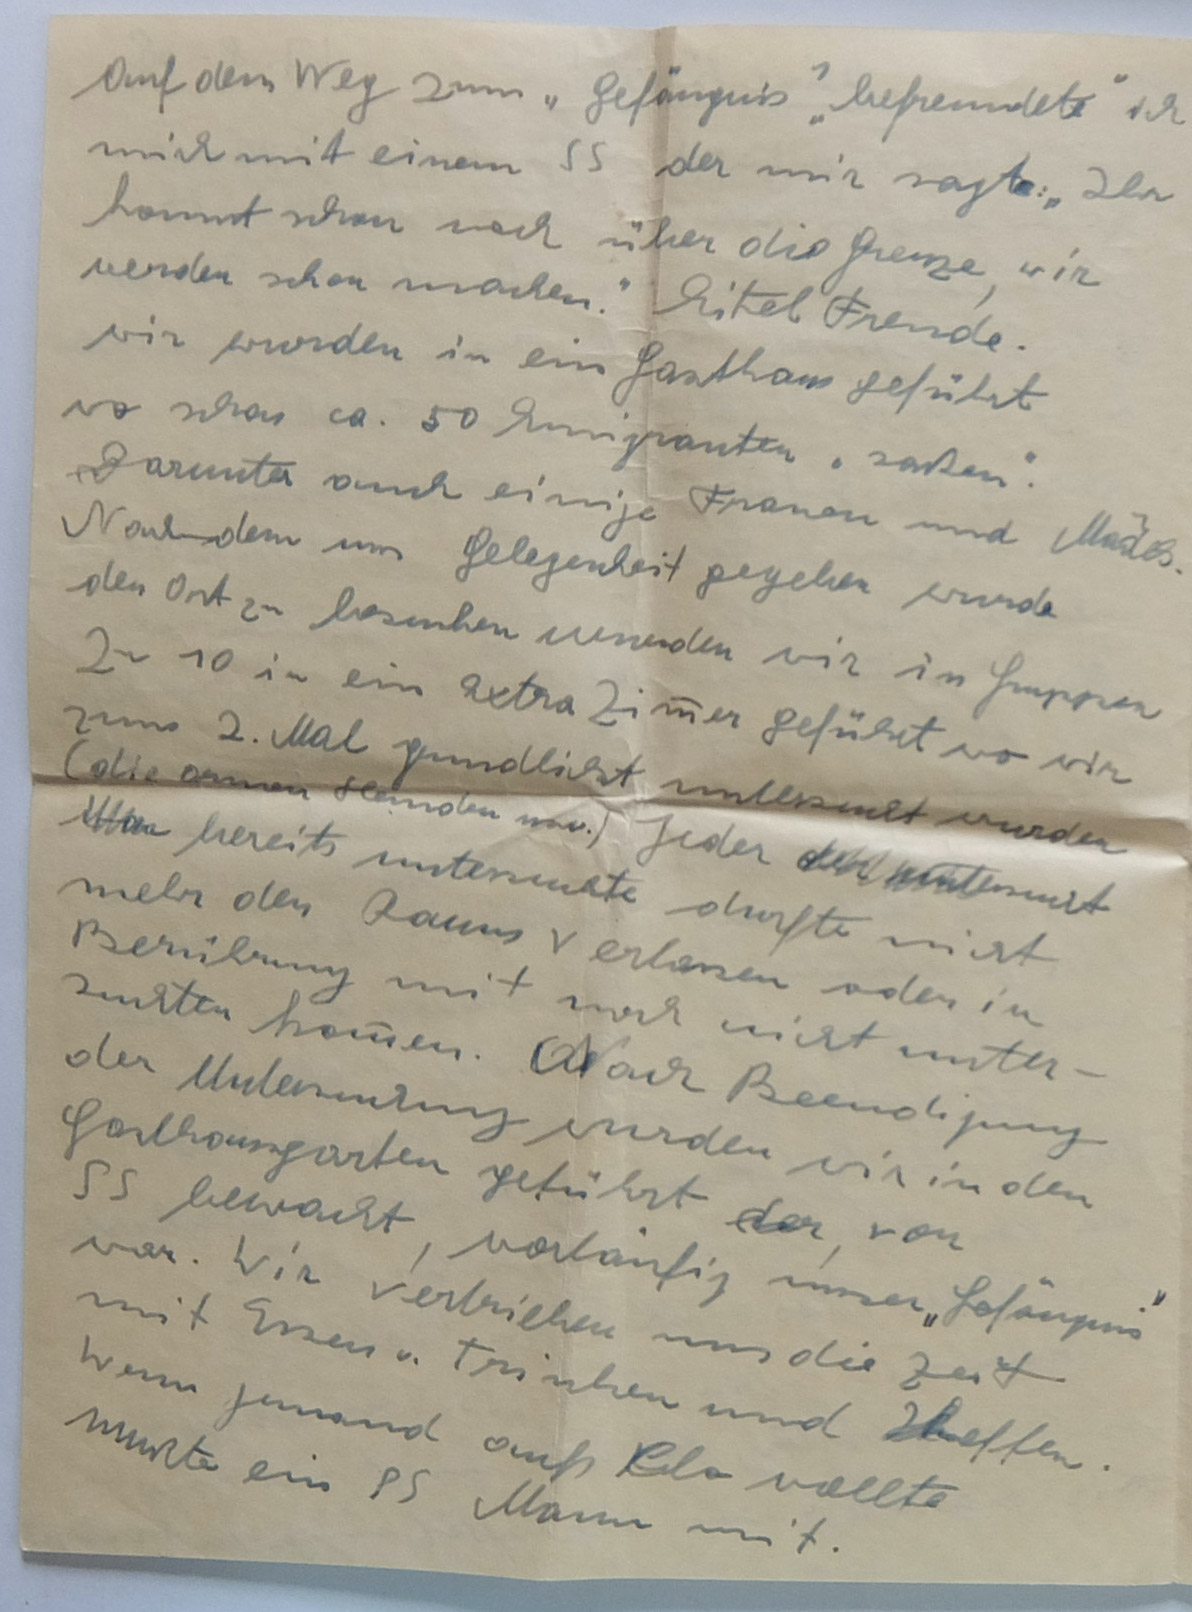 Auf dem Weg zum „Gefängnis“ „befreundete“ ich
mich mit einem SS der mir sagte: „Ihr
kommt schon noch über die Grenze, wir
werden schon machen.“ Eitel Freude.
wir wurden in ein Gasthaus geführt
wo schon ca. 50 Emigranten „saßen“.
Darunter auch einige Frauen und Mädls.
Nachdem uns Gelegenheit gegeben wurde
den Ort zu besuchen wurden wir in Gruppen
Zu 10 in ein extra Zim̄er geführt wo wir
zum 2. Mal gründlichst untersucht wurden
(die armen usw.) Jeder untersucht
bereits untersuchte durfte nicht
mehr den Raum verlassen oder in
Berührung mit noch nicht unter-
suchten kom̄en. Nach Beendigung
der Untersuchung wurden wir in den
Gasthausgarten geführt der, von
SS bewacht, vorläufig unser „Gefängnis“
war. Wir vertrieben uns die Zeit
mit Essen u. Trinken und
Wenn jemand aufs Klo wollte
mußte ein SS Mann mit.